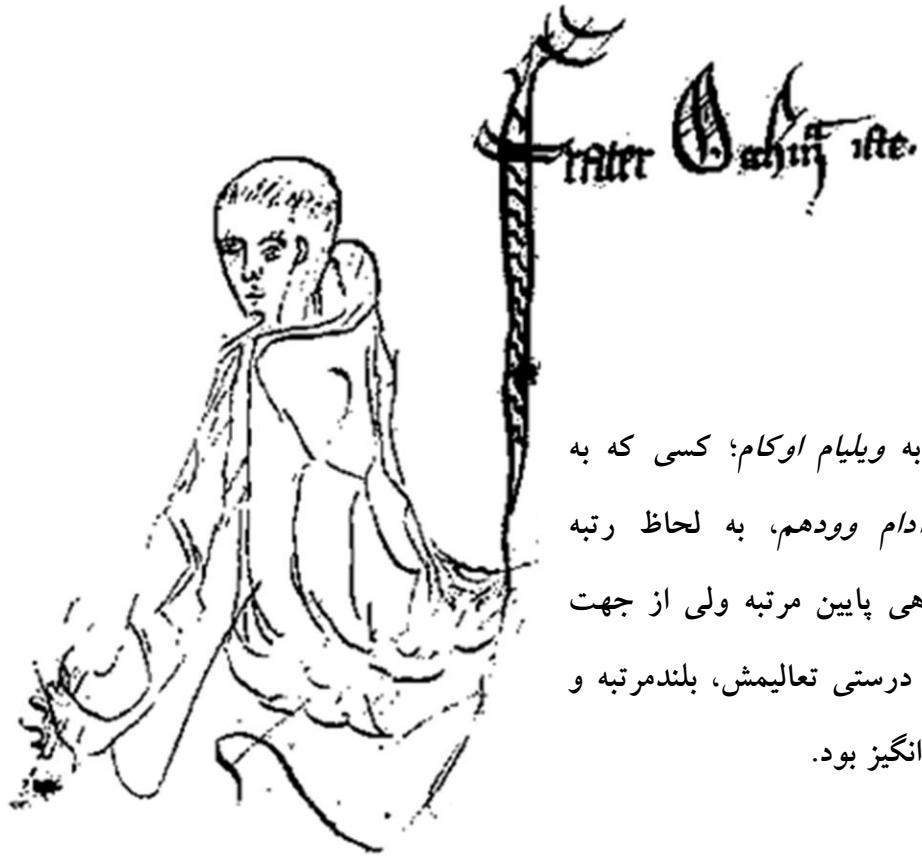 frater Occham iste.
به ویلیام اوکام؛ کسی که به
ادام وودهم، به لحاظ رتبه
هی پایین مرتبه ولی از جهت
درستی تعالیمش، بلندمرتبه و
انگیز بود.